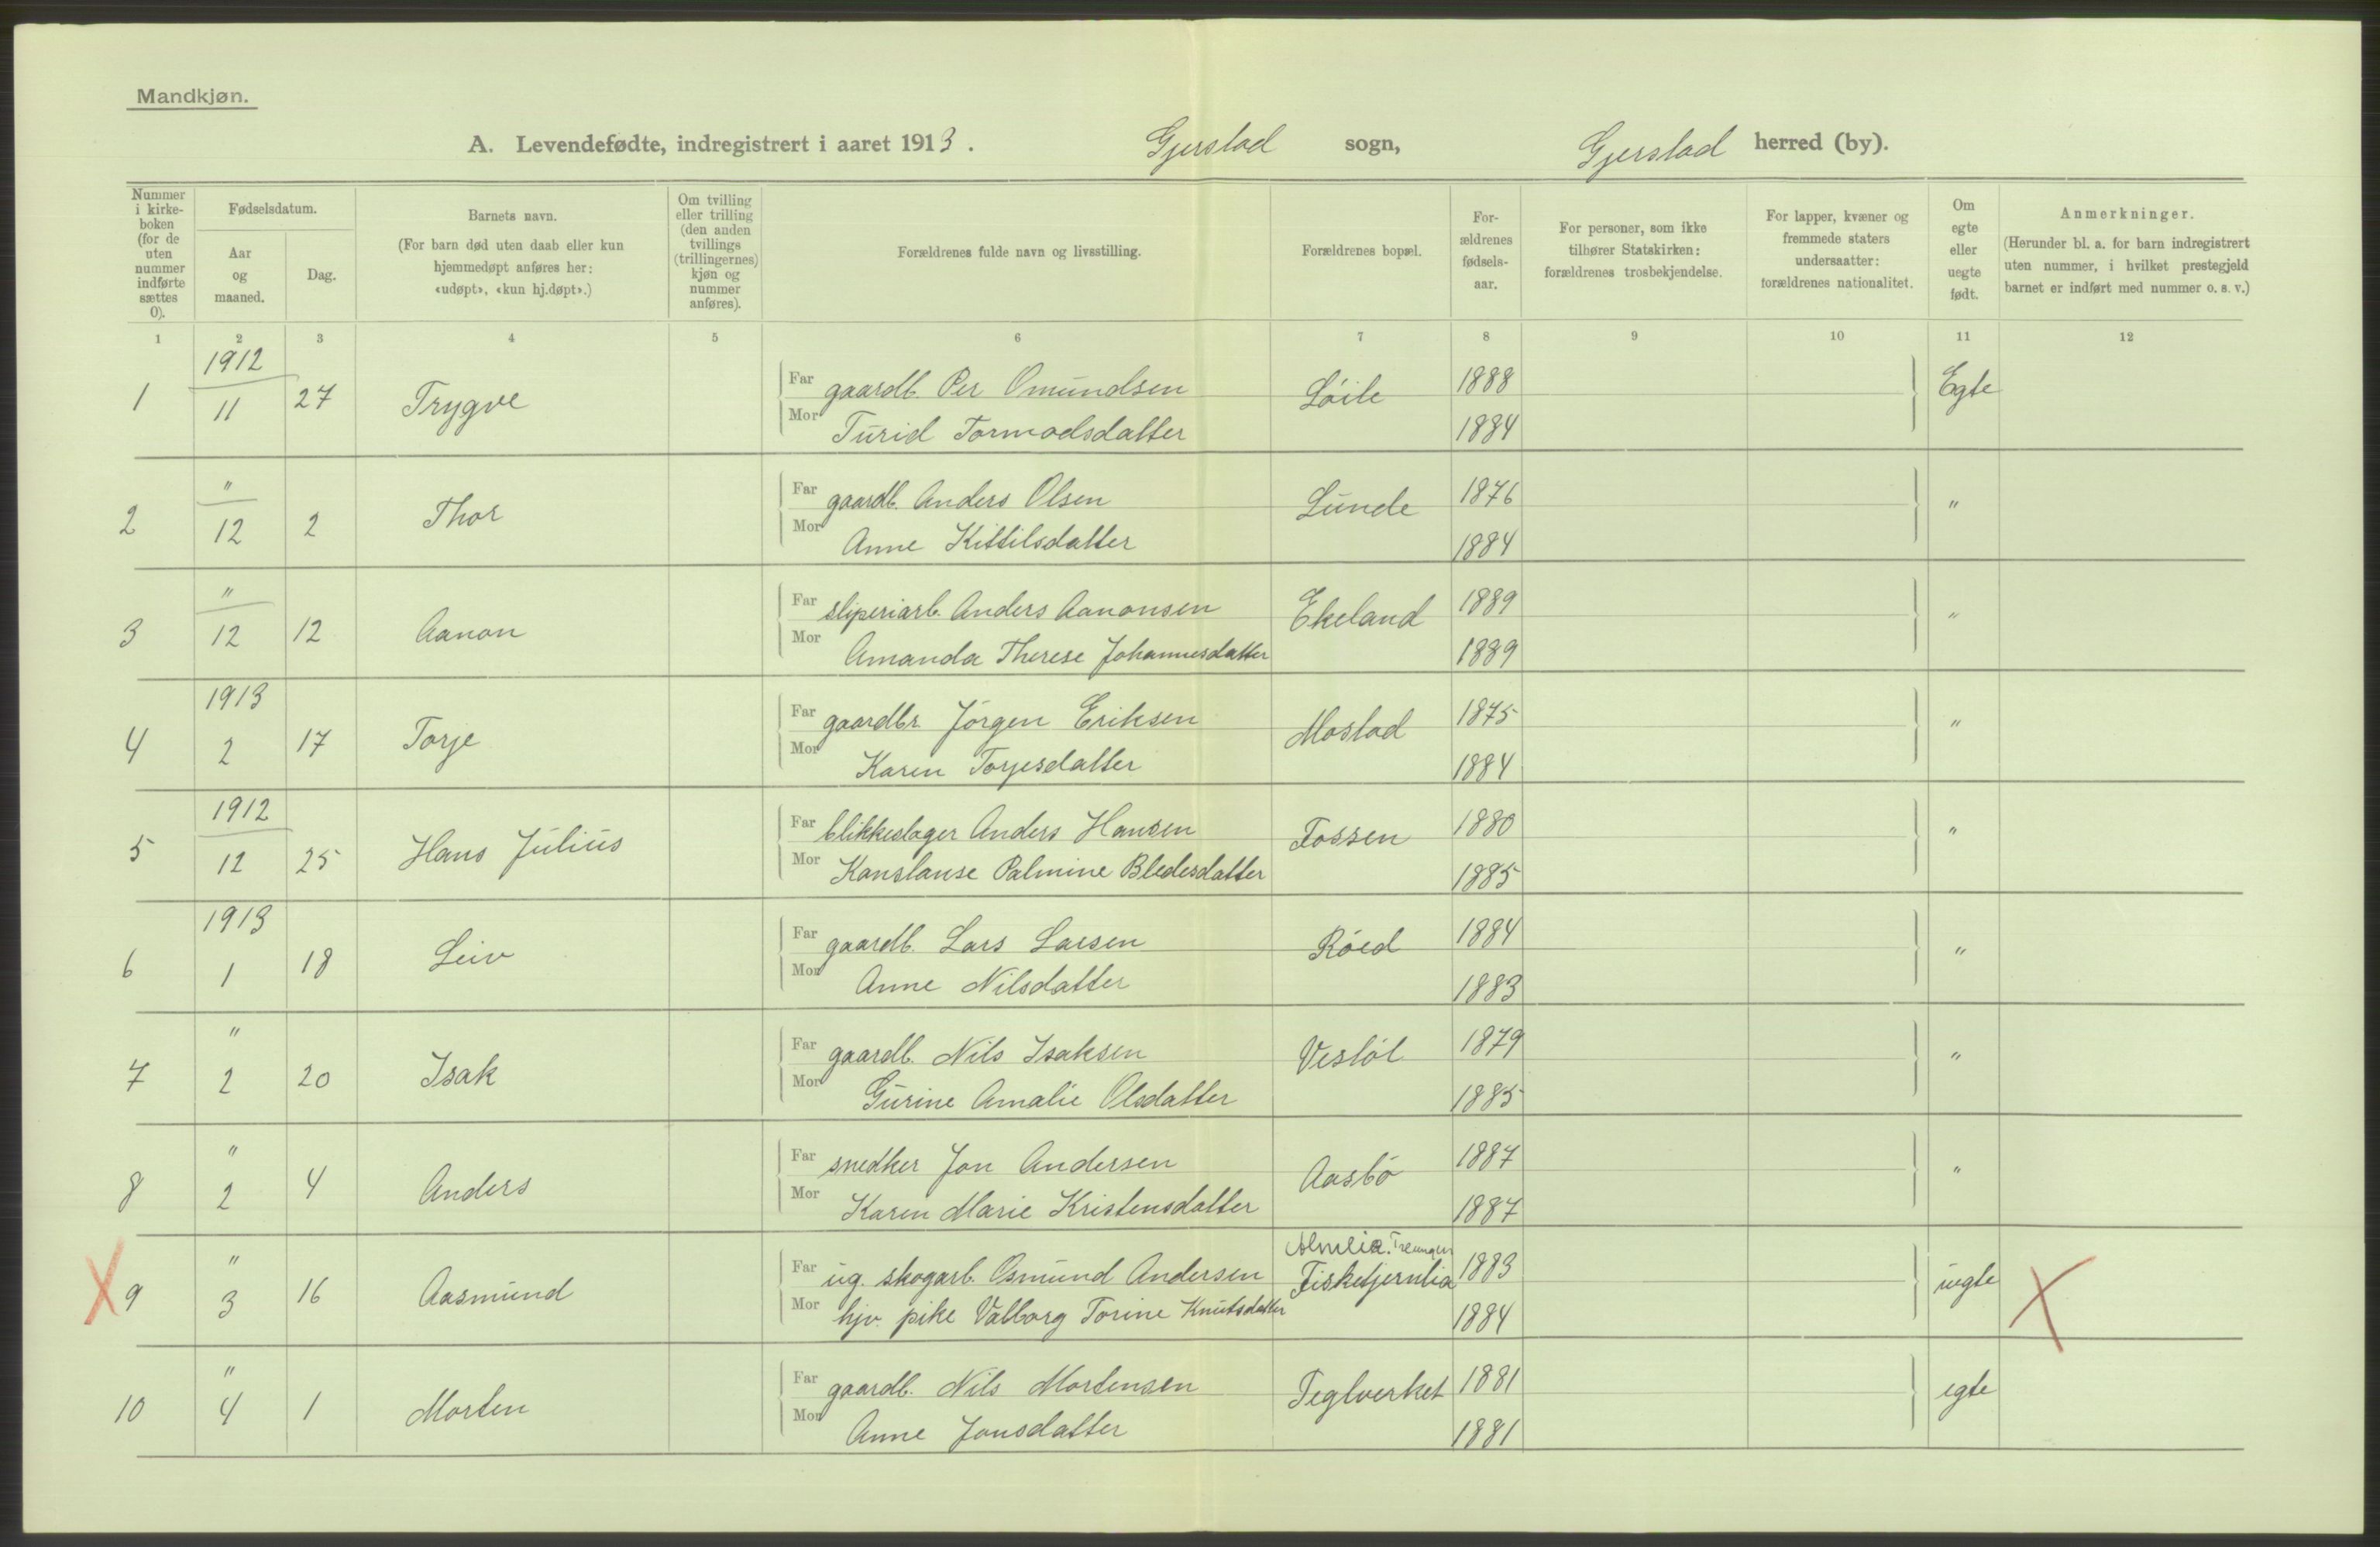 Mandkjøn.
A. Levendefødte, indregistrert i aaret 1913. Gjerstad sogn, Gjerstad herred (by).
Nummer i kirke-boken (for de uten nummer indførte sættes 0).
Fødselsdatum.
Aar og maaned.
Dag.
Barnets navn.
(For barn død uten daab eller kun hjemmedøpt anføres her: «udøpt», «kun hj.døpt».)
Om tvilling eller trilling (den anden tvillings (trillingernes) kjøn og nummer anføres).
Forældrenes fulde navn og livsstilling.
Forældrenes bopæl.
For-ældrenes fødsels-aar.
For personer, som ikke tilhører Statskirken: forældrenes trosbekjendelse.
For lapper, kvæner og fremmede staters undersaatter: forældrenes nationalitet.
Om egte eller uegte født.
Anmerkninger.
(Herunder bl. a. for barn indregistrert uten nummer, i hvilket prestegjeld barnet er indført med nummer o. s. v.)
1 2 3 4 5 6 7 8 9 10 11 12
1 1912 11 27 Trygve Far gaardb. Per Omundsen Löite 1888 Egte
Mor Turid Tormodsdatter 1884
2 " 12 2 Thor Far gaardb. Anders Olsen Lunde 1876 "
Mor Anne Kittilsdatter 1884
3 " 12 12 Aanon Far sliperiarb. Anders Aanonsen Ekeland 1889 "
Mor Amanda Therese Johannesdatter 1889
4 1913 2 17 Torje Far gaardbr. Jörgen Eriksen Mostad 1875 "
Mor Karen Torjesdatter 1884
5 1912 12 25 Hans Julius Far blikkeslager Anders Hansen Fossen 1880 "
Mor Konstanse Palmine Bledesdatter 1885
6 1913 1 18 Leiv Far gaardb. Lars Larsen Röed 1884 "
Mor Anne Nilsdatter 1883
7 " 2 20 Isak Far gaardb. Nils Isaksen Vestöl 1879 "
Mor Gurine Amalie Olsdatter 1885
8 " 2 4 Anders Far snedker Jon Andersen Aasbö 1887 "
Mor Karen Marie Kristensdatter 1887
Treungen
X 9 " 3 16 Aasmund Far ug. skogarb. Osmund Andersen Fisketjernlia 1883 uegte X
Mor hjv. pike Valborg Torine Knutsdatter 1884
10 " 4 1 Morten Far gaardb. Nils Mortensen Teglverket 1881 egte
Mor Anne Jonsdatter 1881